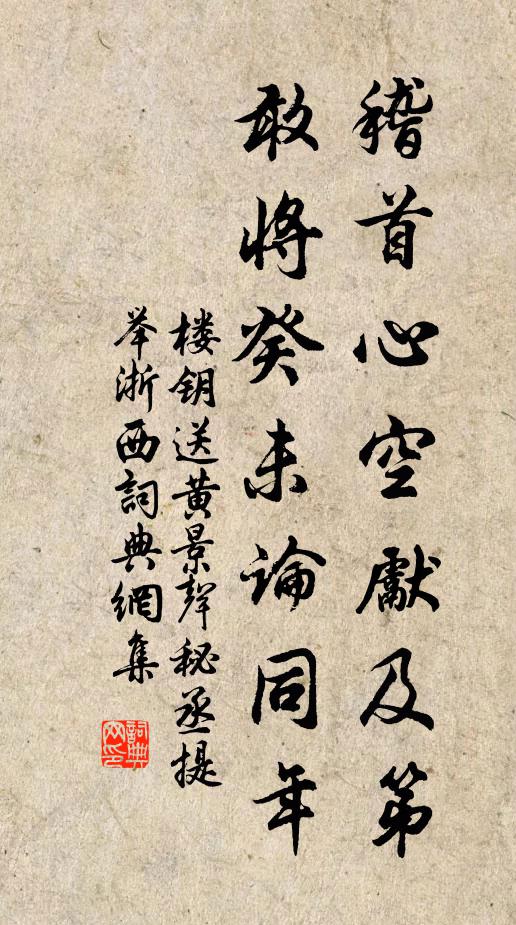 稽首心空獻及第
敢將癸未論同年
楼钥送黄景聲秘丞提
举浙西詞典網集
詞典
网印